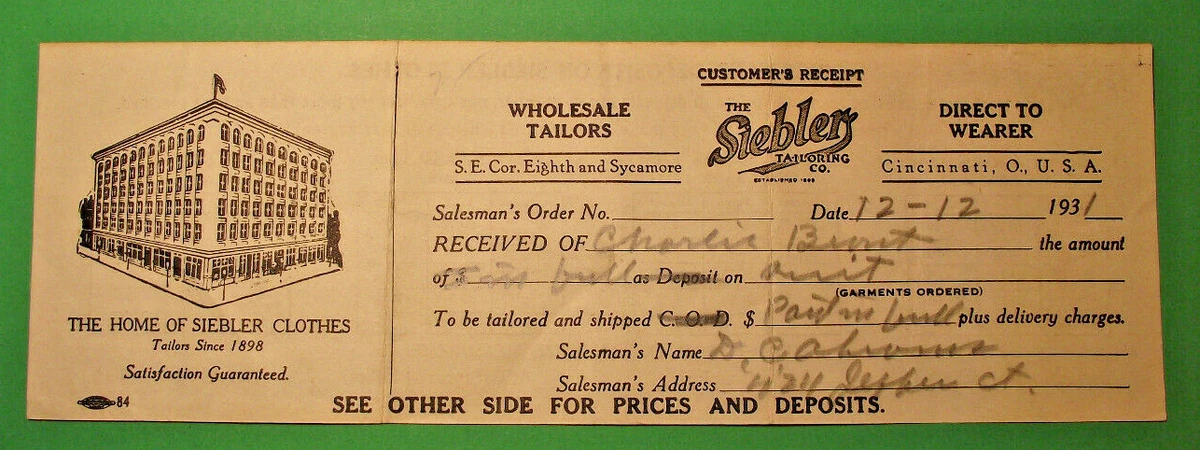 CUSTOMER'S RECEIPT
WHOLESALE
TAILORS
S. E. Cor. Eighth and Sycamore
THE
Siebler
TAILORING
CO.
ESTABLISHED 1898
DIRECT TO
WEARER
Cincinnati, O., U. S. A.
Salesman's Order No. Date 12-12 1931
RECEIVED OF Charlie the amount
of $ full as Deposit on
(GARMENTS ORDERED)
To be tailored and shipped C. O. D. $ Paid in full plus delivery charges.
Salesman's Name D. C. Abrams
Salesman's Address ct.
THE HOME OF SIEBLER CLOTHES
Tailors Since 1898
Satisfaction Guaranteed.
84
SEE OTHER SIDE FOR PRICES AND DEPOSITS.